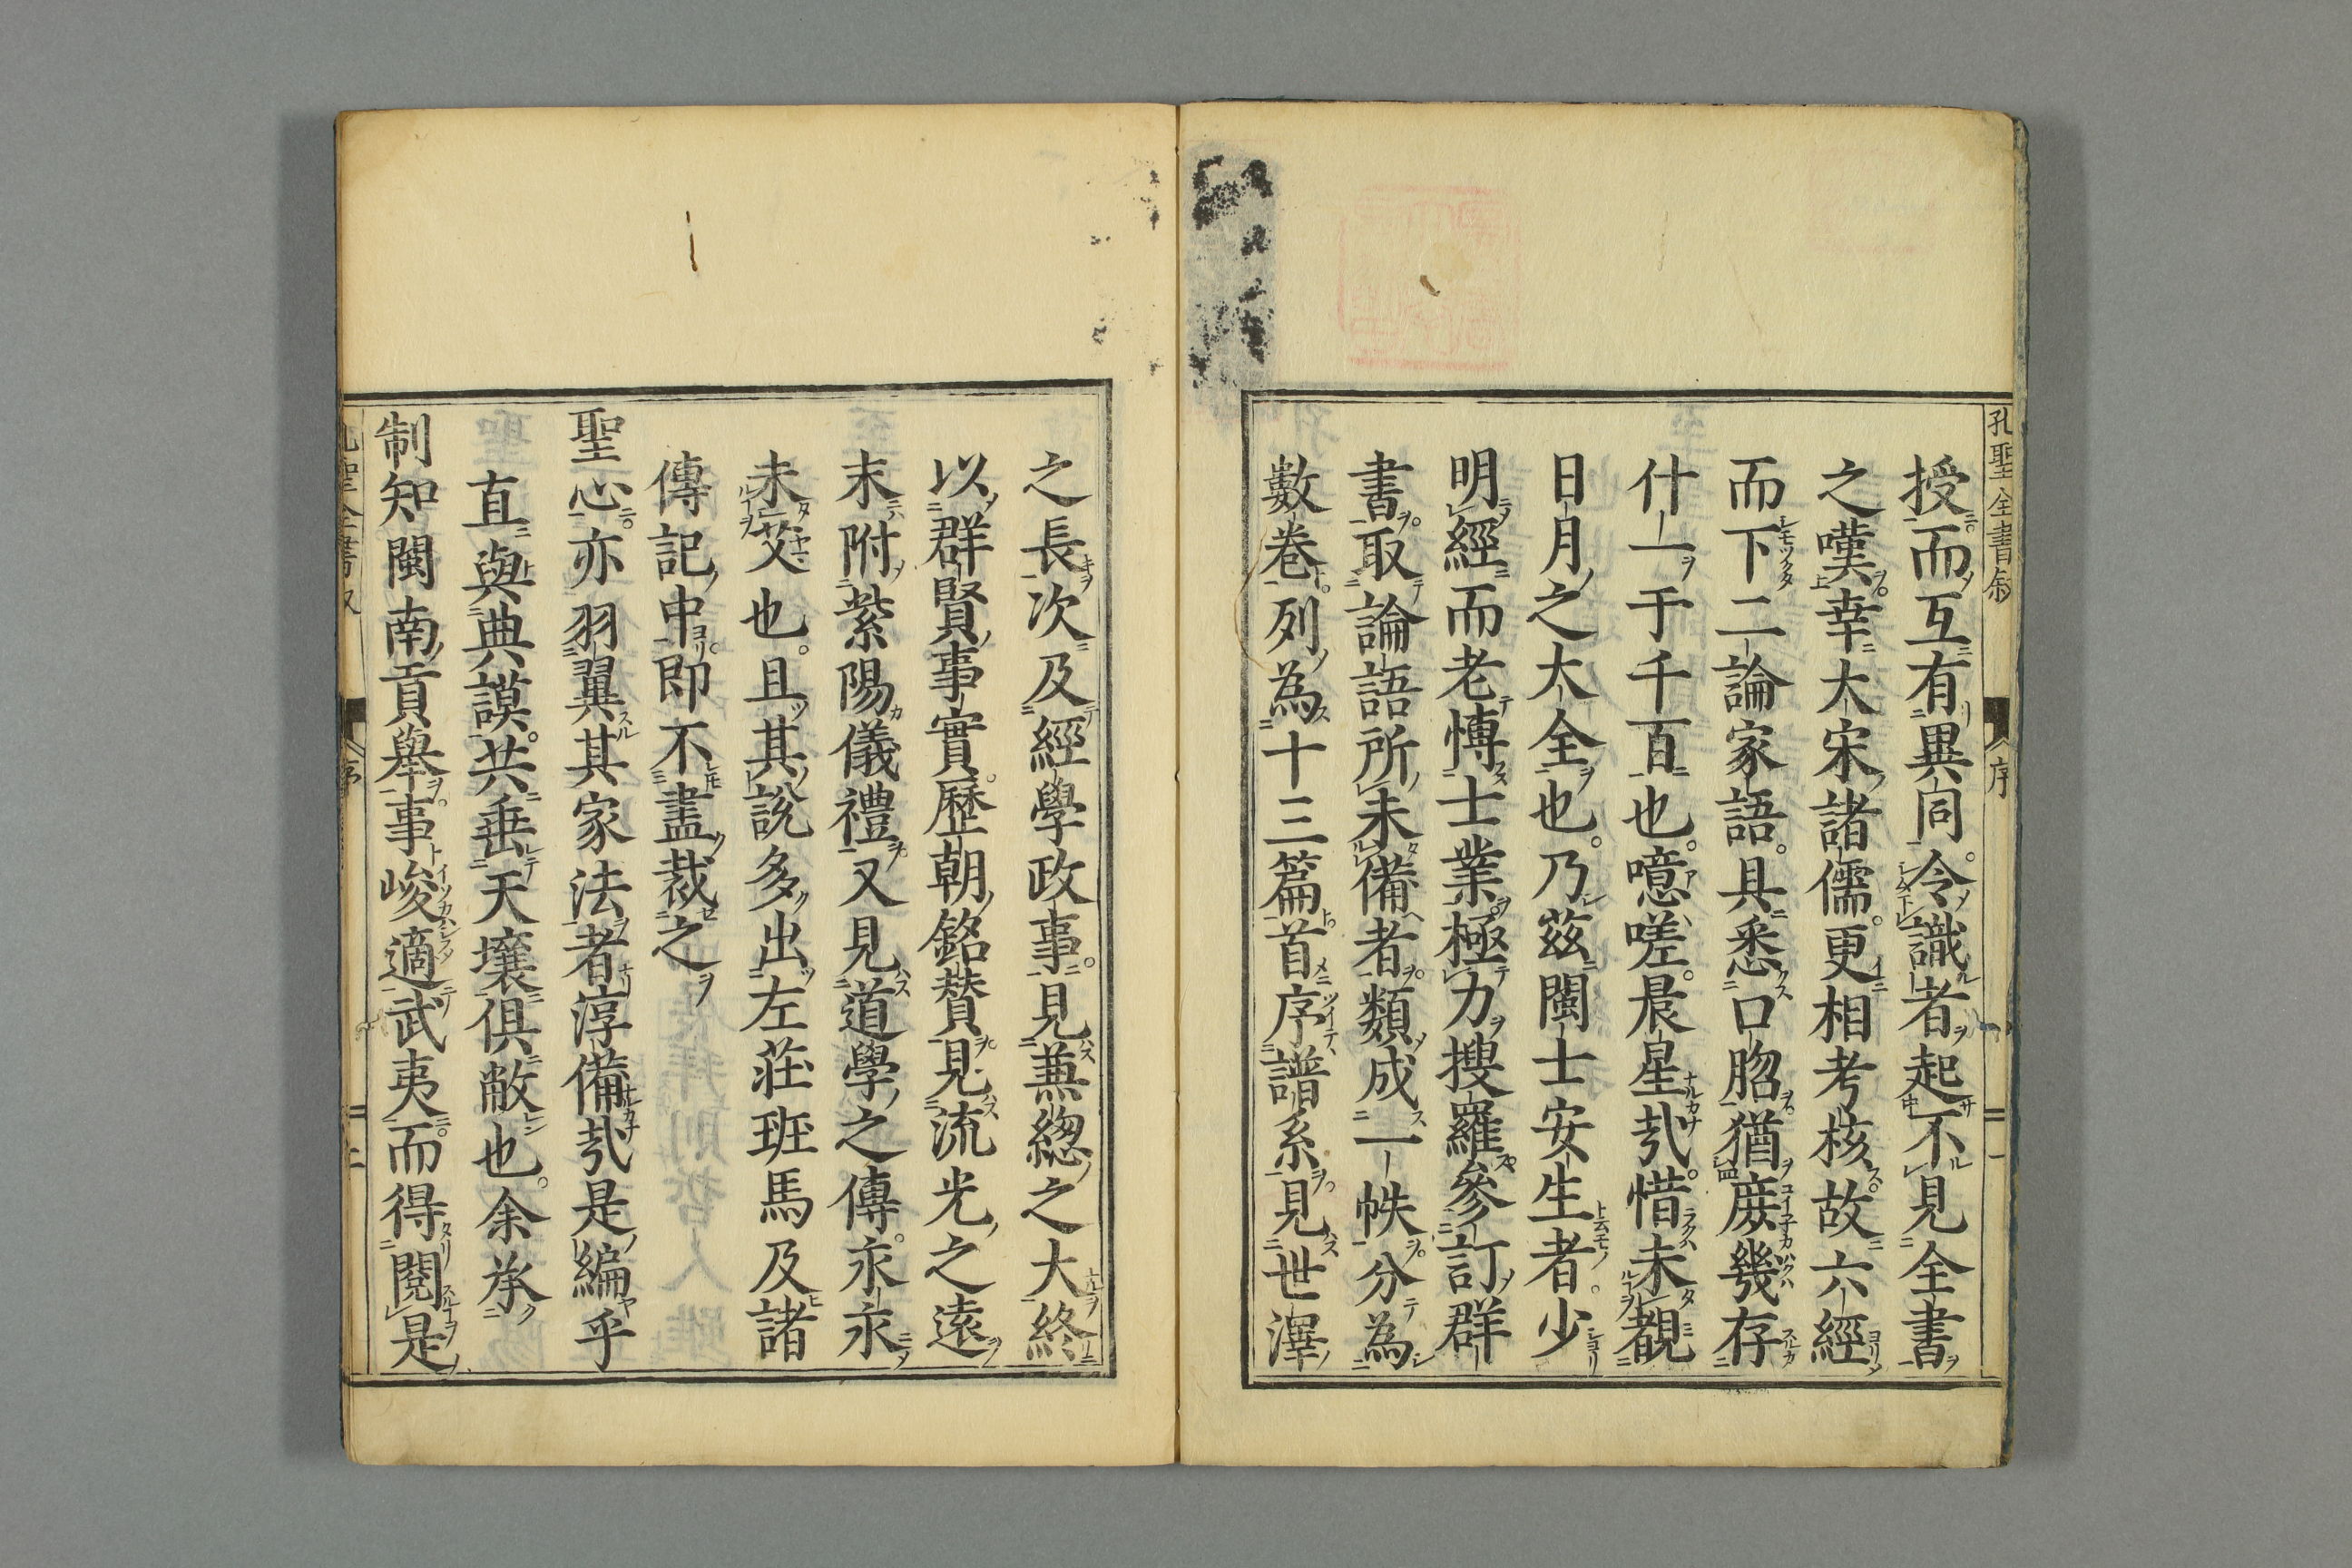 孔聖全書叙 序
授而互有異同。令識者起不見全書
之嘆幸大宋諸儒。更相考核故六經
而下二論家語。具悉口脗猶庻幾存
什一于千百也。噫嗟。晨星㢤。惜未覩
日月之大全也。乃茲閩士安生者。少
明經而老愽士業極力搜羅參訂群
書取論語所未備者類成一帙分為
數卷列為十三篇首序譜系見世澤
之長次及經學政事。見兼緫之大終
以群賢事實。歷朝銘賛見流光之遠
末附紫陽儀禮又見道學之傳。永永
未艾也。且其說多出左莊班馬及諸
傳記中即不盡裁之
聖心亦羽翼其家法者淳備㢤是編乎
直與典謨。共垂天壤俱敝也。余承
制知閩南貢舉。事峻適武夷而得閱是